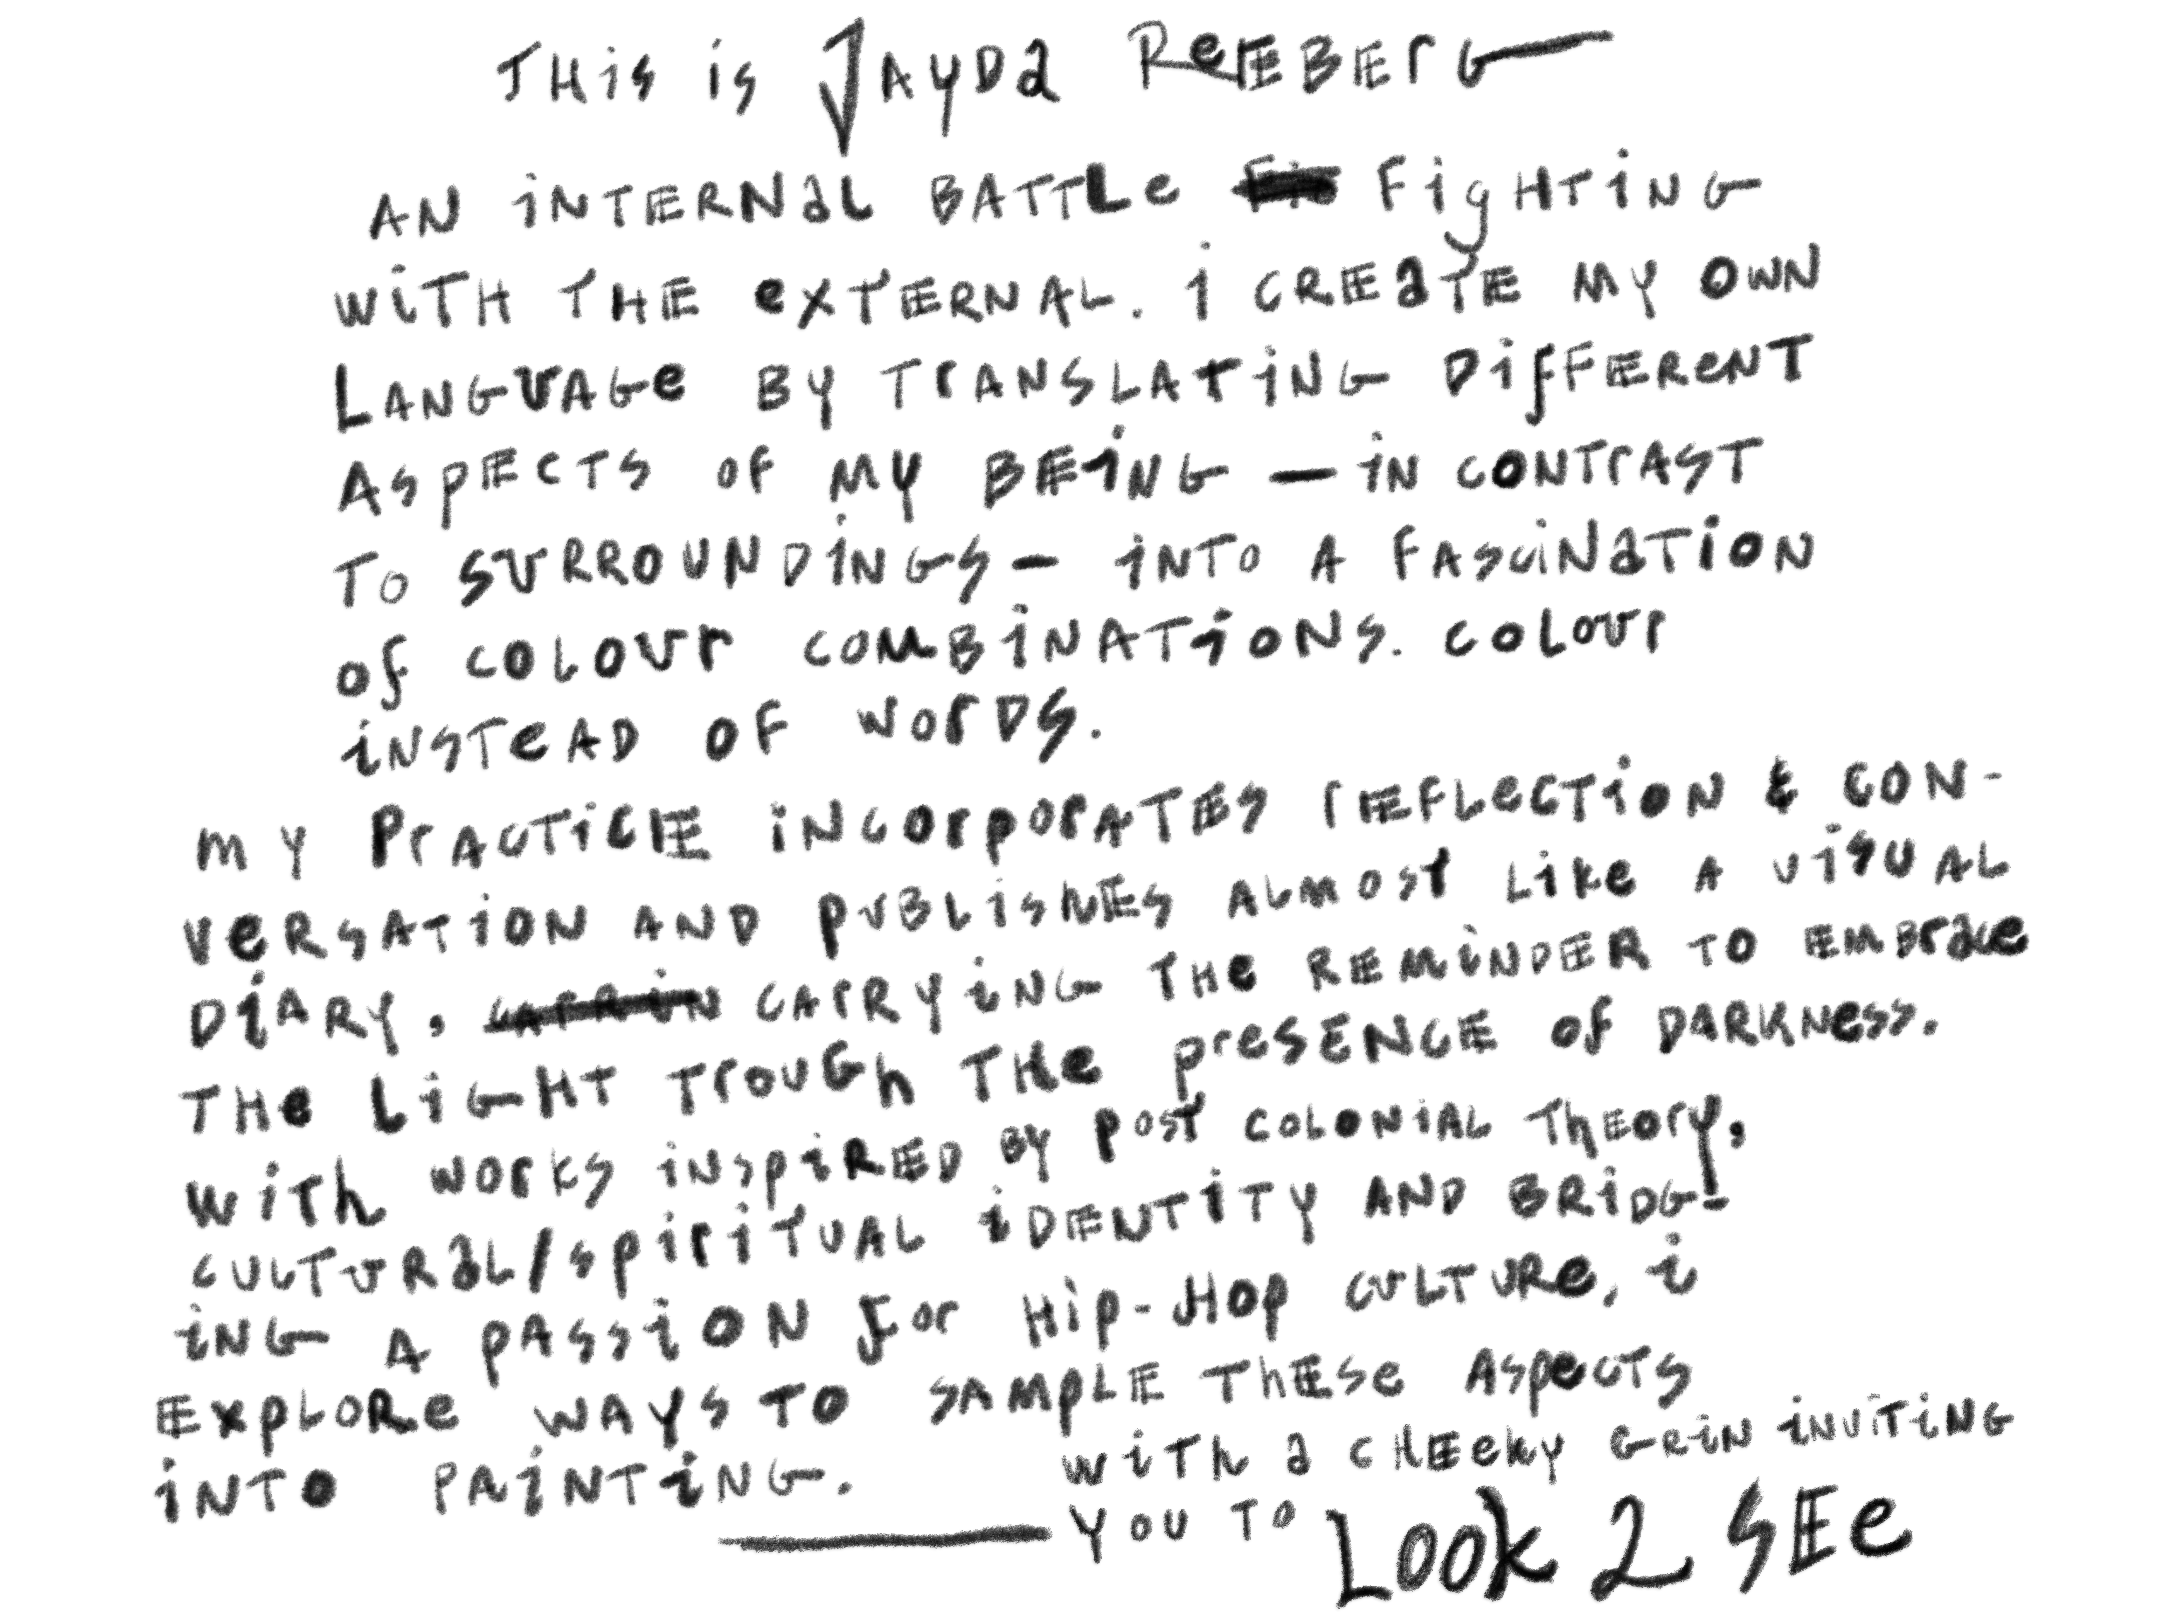 THis is JAYDa ReEBErG
AN iNTERNaL BATTLe Fi FiGHTiNG
WiTH THE eXTERNAL. i CREaTE MY OWN
LANGUAGe BY TrANSLATiNG DifFERENT
ASPECTS OF MY BEiNG — iN CONTrAST
To SURROUNDiNGS — iNTO A FASciNaTiON
of COLOUr COMBiNATiONS. COLOUr
iNSTeAD OF WOrDS.
MY PrACTiCE iNCOrpOrATES rEFLeCTiON & CON-
VeRSATiON AND pUBLiSHES ALMOST LiKe A ViSUAL
DiARY, CARRiN CArRYiNG THe REMiNDER TO EMBraCe
THe LiGHT TrOUGh THe prESENCE Of DARKNeSS.
WiTh WOrKS iNSpiRED BY pOST COLONiAL ThEOrY,
CULTURaL/SpiriTUAL iDENTiTY AND BRiDG-
iNG A pASSiON for Hip-HOp CULTURe, i
EXpLORe WAYS TO SAMpLE ThESe ASpeCTS
iNTO PAiNTiNG.
WiTh a CHEeKY GRiN iNViTiNG
YOU TO LOOk 2 SEe